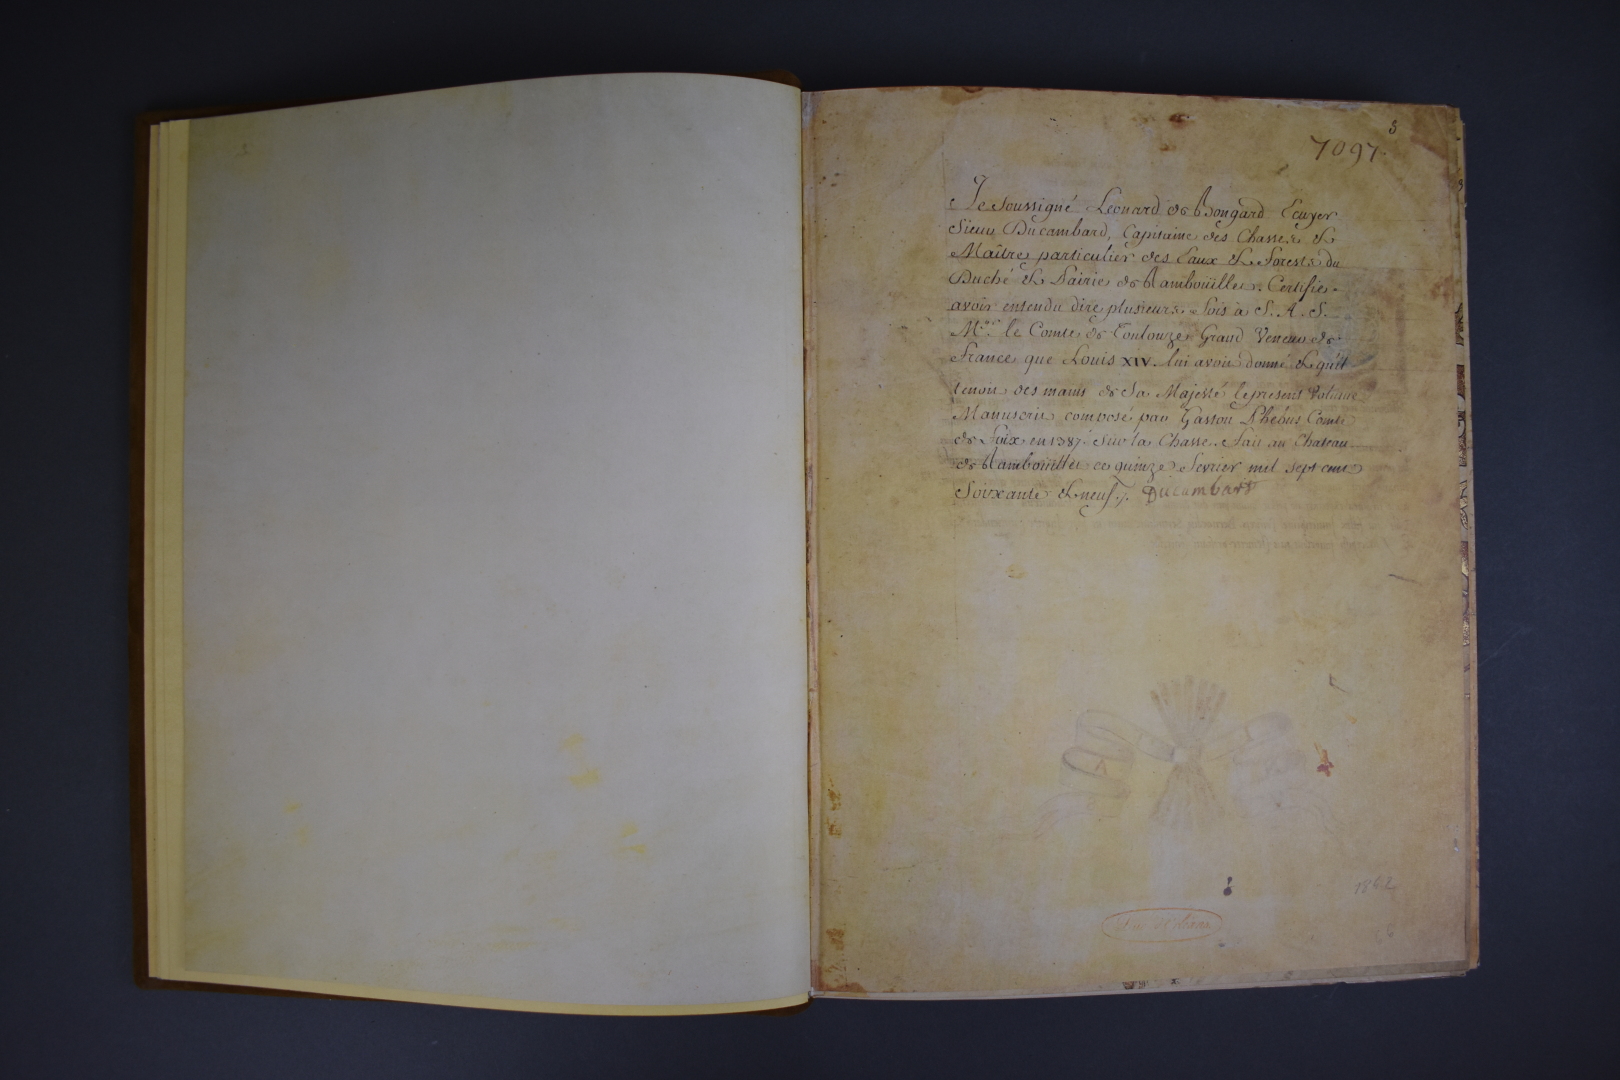 8
7097.
Je soussigné Leonard de Bongard Ecuyer
Sieur Ducambard, Capitaine des Chasses &
Maître particulier des Eaux & Forests du
Duché & Pairie de Rambouillet. Certifie
avoir entendu dire plusieurs fois à S. A. S.
M.gr le Comte de Toulouze Grand Veneur de
France que Louis XIV. lui avoit donné & qu'il
tenoit des mains de Sa Majesté le present Volume
Manuscrit composé par Gaston Phébus Comte
de Foix en 1387. Sur la Chasse. Fait au Chateau
de Rambouillet ce quinze Fevrier mil sept cent
Soixante & neuf./. Ducambard
1862